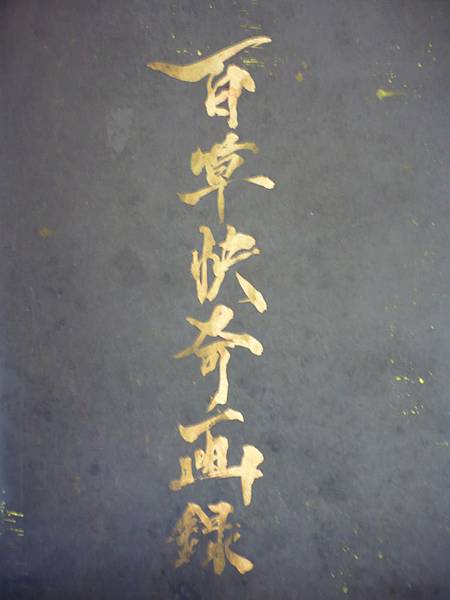 百草快奇画録